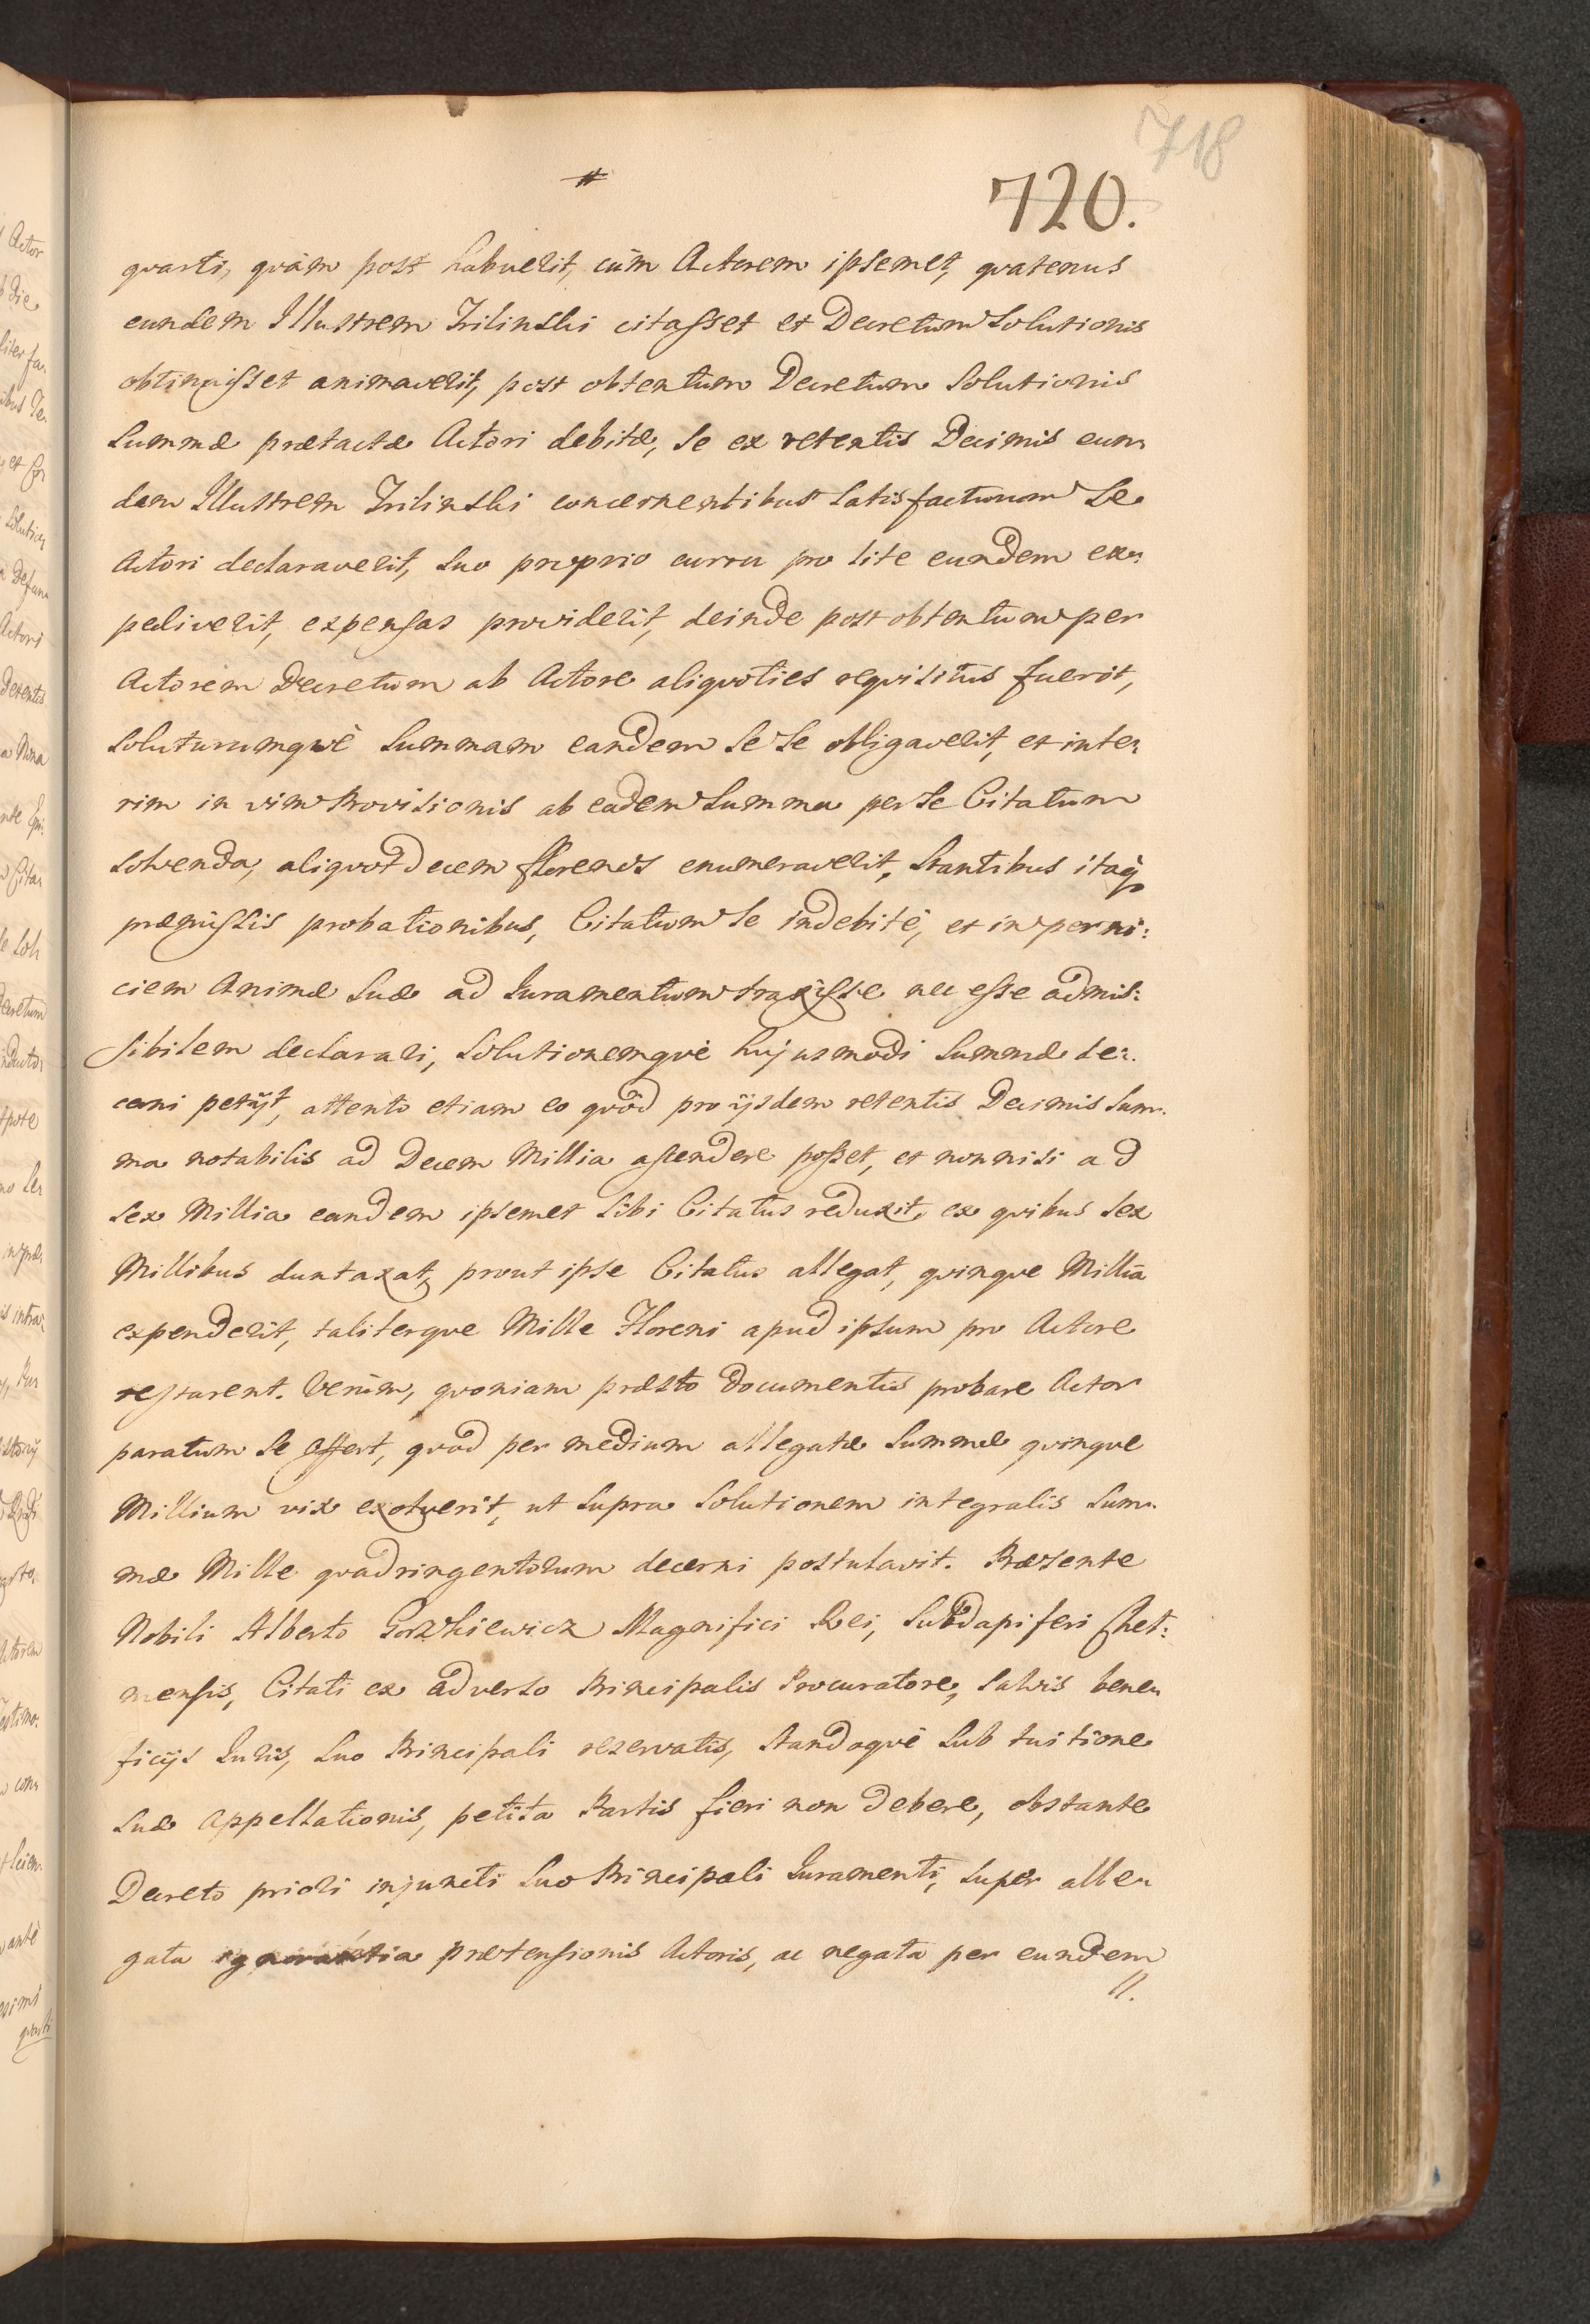 718
720.
quarti, quàm post habuerit, cùm Actorem ipsemet, quatenus
eundem Illustrem Trilinski citasset et Decretum Solutionis
obtinuisset animaverit, post obtentum Decretum Solutionis
Summæ prætactæ Actori debitæ, se ex retentis Decimis eun
dem Illustrem Trilinski concernentibus satisfacturum se
Actori declaraverit, suo proprio curru pro lite eundem ex:
pediverit, expensas providerit, deinde post obtentum per
Actorem Decretum ab Actore aliquoties requisitus fuerit,
soluturumquè Summam eandem se se obligaverit, et inte:
rim in vim Provisionis ab eadem Summa per se Citatum
solvenda, aliquot decem florenos enumeraverit, Stantibus itaq
præmissis probationibus, Citatum se indebitè, et in perni:
ciem Animæ suæ ad Juramentum traxisse nec esse admis:
sibilem declarari, Solutionemquè hujusmodi Summæ de:
cerni petijt, attento etiam eo quòd pro ijsdem retentis Decimis Sum:
ma notabilis ad Decem Millia ascendere posset, et nonnisi ad
sex Millia eandem ipsemet sibi Citatus reduxit, ex quibus sex
Millibus duntaxat, prout ipse Citatus allegat, quinque Millia
expenderit, taliterque Mille Floreni apud ipsum pro Actore
restarent. Verùm, quoniam præsto documentis probare Actor
paratum se offert, quòd per medium allegatæ Summæ quinque
Millium vix exolverit, ut supra Solutionem integralis Sum:
mæ Mille quadringentorum decerni postulavit. Præsente
Nobili Alberto Gorzkiewicz Magnifici Rei, Subdapiferi Chel:
mensis, Citati ex adverso Principalis Procuratore, salvis bene:
ficijs Juris, suo Principali reservatis, Standoquè sub tuitione
suæ Appellationis, petita Partis fieri non debere, obstante
Decreto priori injuncti suo Principali Juramenti, super alle:
gata ignorantia prætensionis Actoris, ac negata per eundem
//.